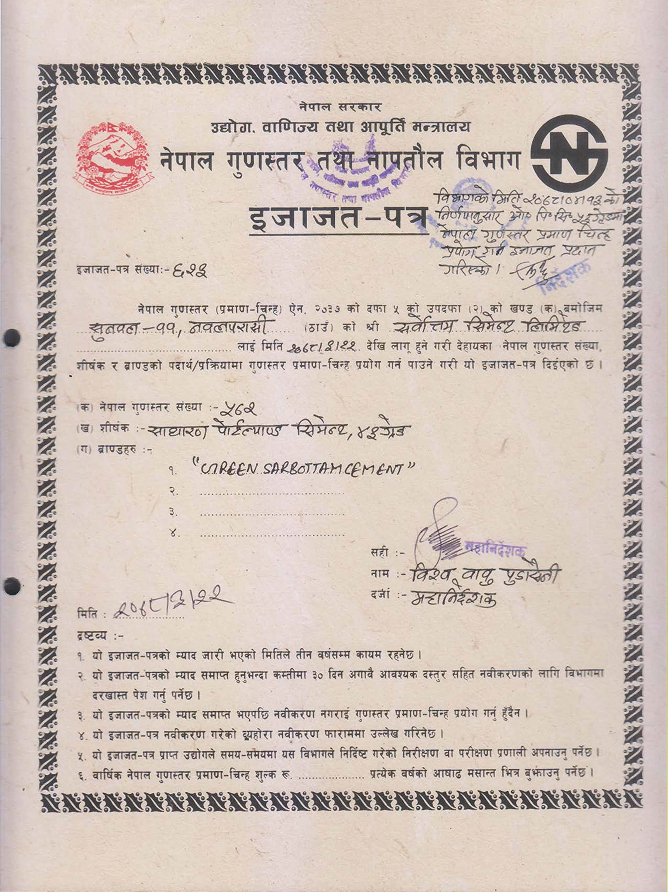 नेपाल सरकार
उद्योग, वाणिज्य तथा आपूर्ति मन्त्रालय
नेपाल गुणस्तर तथा नापतौल विभाग
इजाजत-पत्र
विभागको मिति २०६८।०४।१३ को
निर्णयानुसार ओ. पि. सि. ४३ ग्रेडमा
नेपाल गुणस्तर प्रमाण चिन्ह
प्रयोग गर्न इजाजत प्रदान
गरिएको।
निर्देशक
इजाजत-पत्र संख्याः- ६२३
नेपाल गुणस्तर (प्रमाण-चिन्ह) ऐन, २०३७ को दफा ५ को उपदफा (२) को खण्ड (क) बमोजिम
सुनवल -११, नवलपरासी (ठाउँ) को श्री सर्वोत्तम सिमेन्ट लिमिटेड
लाई मिति २०६८।३।२२ देखि लागू हुने गरी देहायका नेपाल गुणस्तर संख्या,
शीर्षक र ब्राण्डको पदार्थ/प्रक्रियामा गुणस्तर प्रमाण-चिन्ह प्रयोग गर्न पाउने गरी यो इजाजत-पत्र दिईएको छ ।
(क) नेपाल गुणस्तर संख्या :- ५७२
(ख) शीर्षक :- साधारण पोर्टल्याण्ड सिमेन्ट, ४३ ग्रेड
(ग) ब्राण्डहरु :-
१. "GREEN SARBOTTAM CEMENT"
२.
३.
४.
सही :- महानिर्देशक
नाम :- विश्व बाबु पुडासैनी
दर्जा :- महानिर्देशक
मिति : २०६८/३/२२
द्रष्टव्य :-
१. यो इजाजत-पत्रको म्याद जारी भएको मितिले तीन वर्षसम्म कायम रहनेछ ।
२. यो इजाजत-पत्रको म्याद समाप्त हुनुभन्दा कम्तीमा ३० दिन अगावै आवश्यक दस्तुर सहित नवीकरणको लागि विभागमा
दरखास्त पेश गर्नु पर्नेछ ।
३. यो इजाजत-पत्रको म्याद समाप्त भएपछि नवीकरण नगराई गुणस्तर प्रमाण-चिन्ह प्रयोग गर्न हुँदैन ।
४. यो इजाजत-पत्र नवीकरण गरेको ब्यहोरा नवीकरण फाराममा उल्लेख गरिनेछ ।
५. यो इजाजत-पत्र प्राप्त उद्योगले समय-समयमा यस विभागले निर्दिष्ट गरेको निरीक्षण वा परीक्षण प्रणाली अपनाउनु पर्नेछ ।
६. वार्षिक नेपाल गुणस्तर प्रमाण-चिन्ह शुल्क रू. .................... प्रत्येक वर्षको आषाढ मसान्त भित्र बुझाउनु पर्नेछ ।